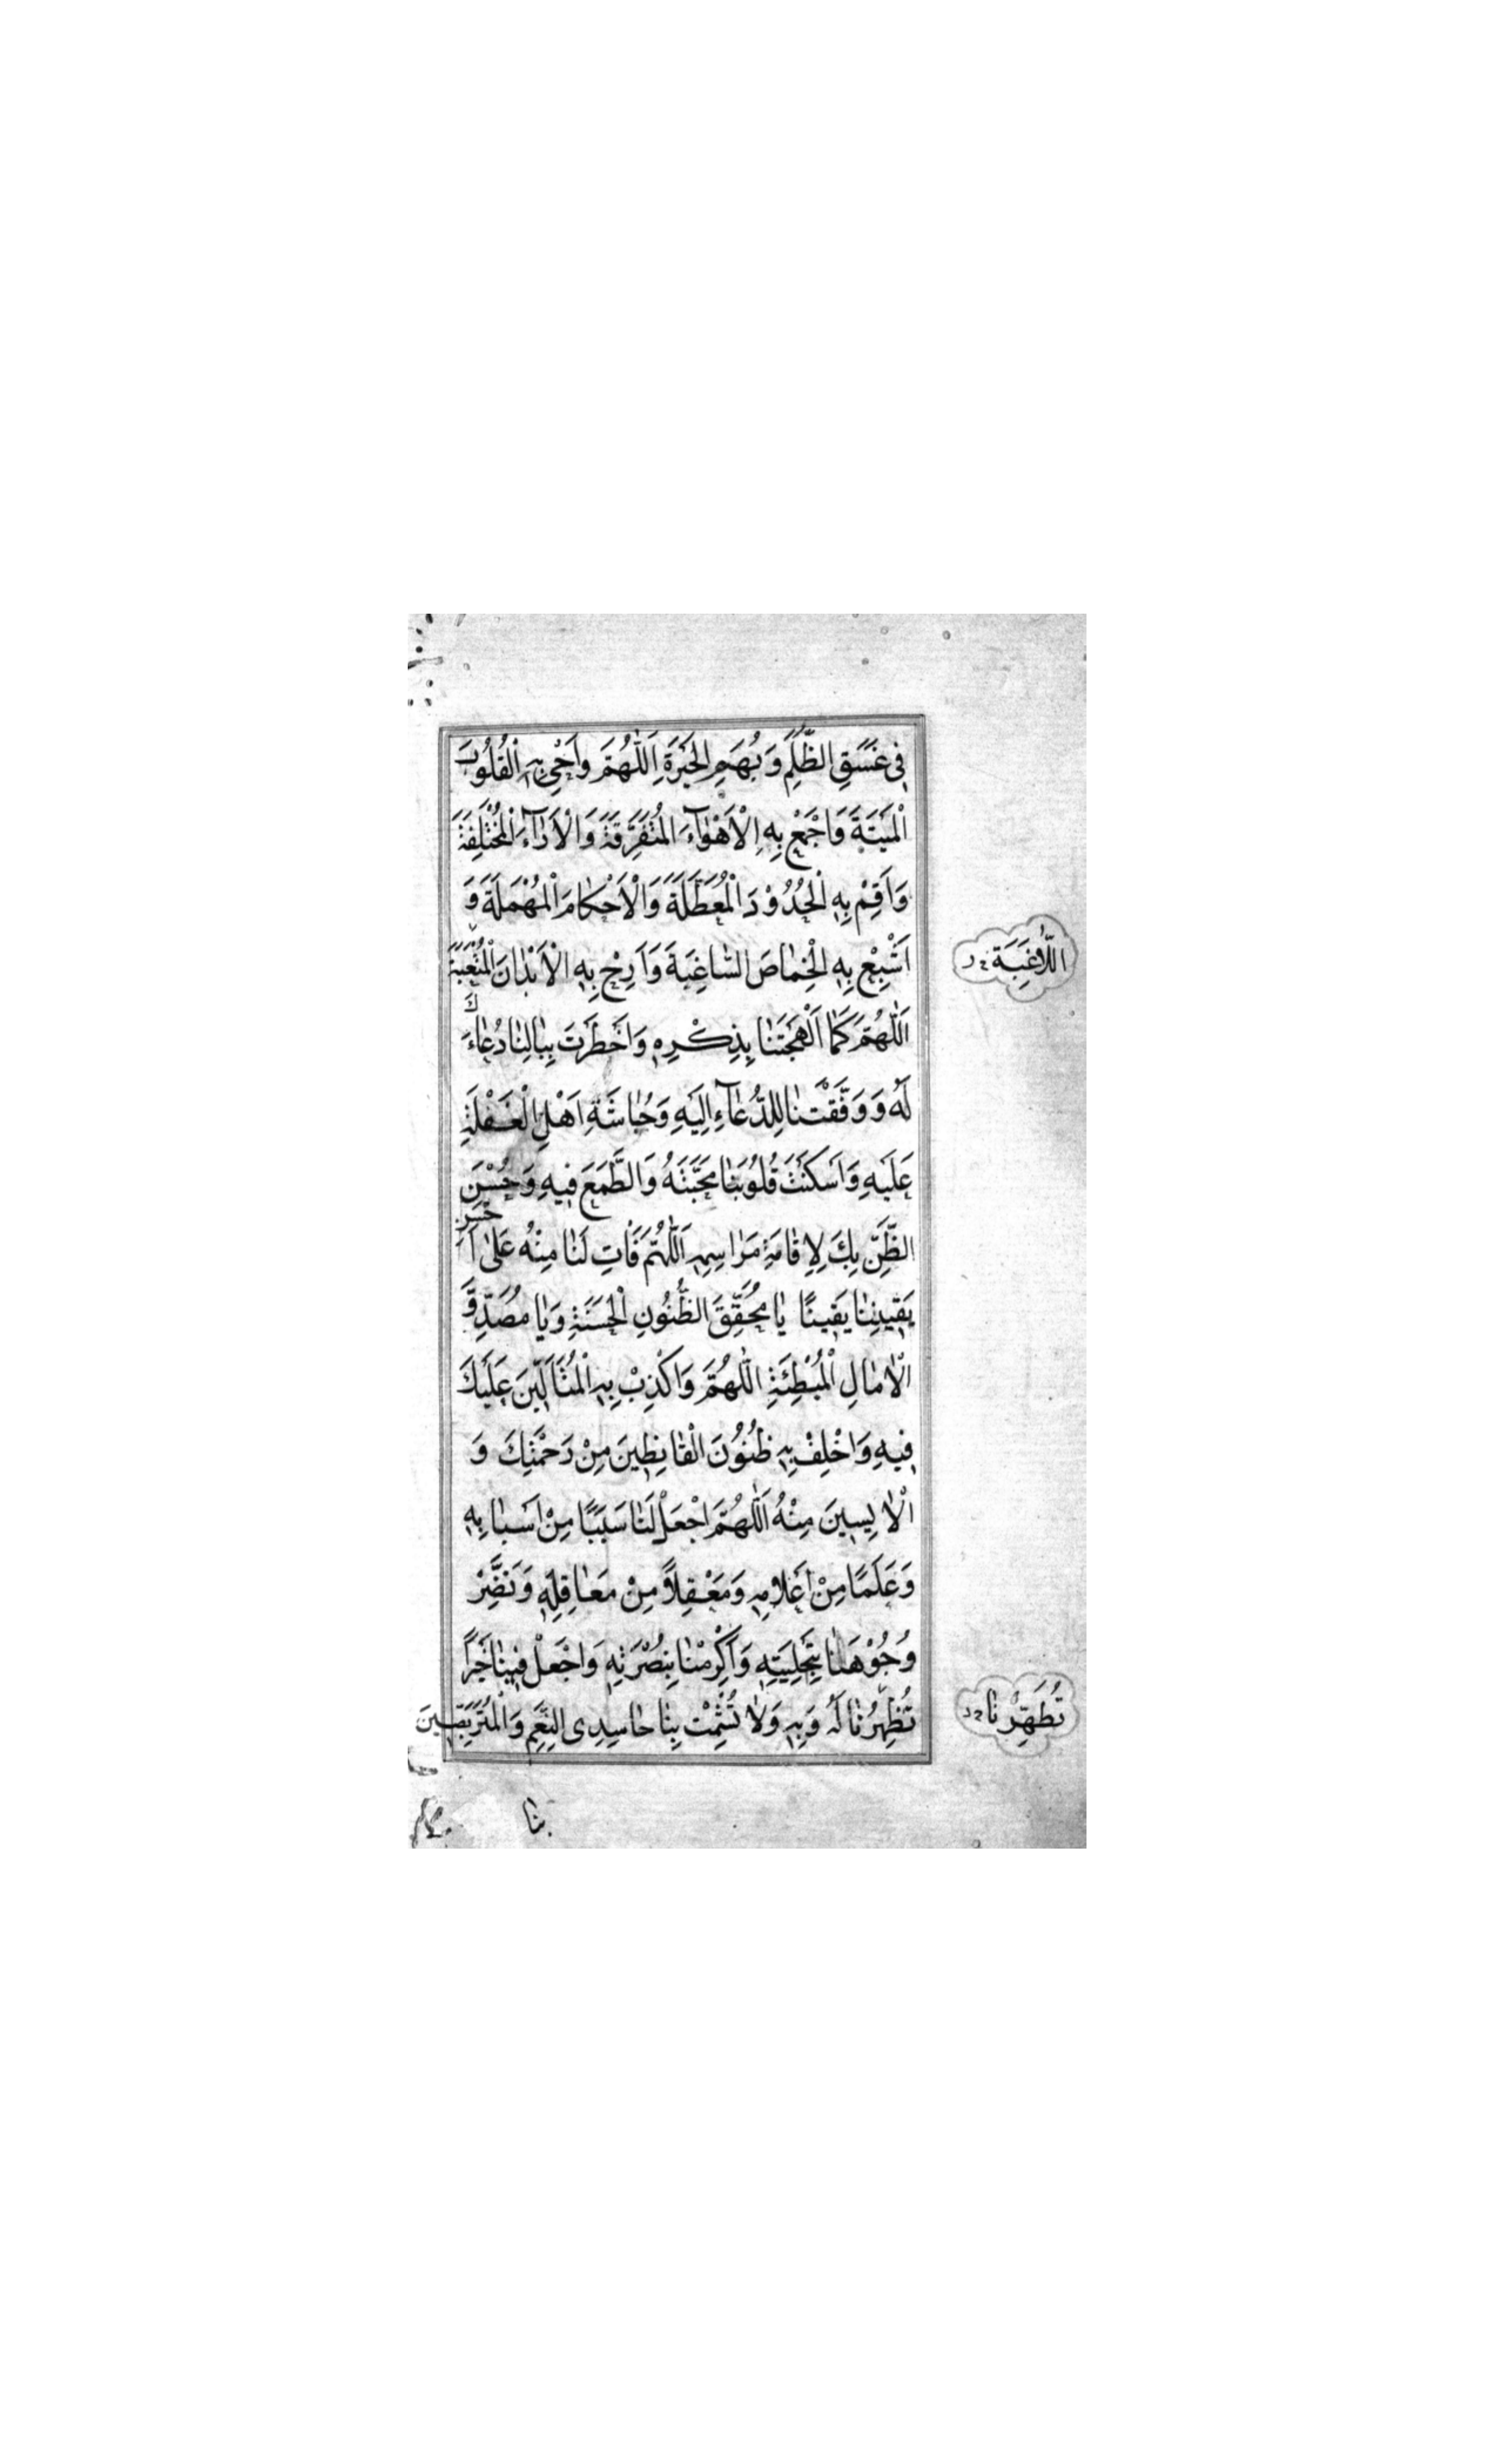 فِي غَسَقِ الظُّلَمِ وَبُهَمِ الْحَيْرَةِ اَللّٰهُمَّ وَاَحْيِ بِهِ الْقُلُوبَ
الْمَيْتَةَ وَاجْمَعْ بِهِ الْاَهْوٰآءَ الْمُتَفَرِّقَةَ وَالْاٰرٰآءَ الْمُخْتَلِفَةَ
وَاَقِمْ بِهِ الْحُدُوْدَ الْمُعَطَّلَةَ وَالْاَحْكٰامَ الْمُهْمَلَةَ وَ
اَشْبِعْ بِهِ الْخِمٰاصَ السّٰاغِبَةَ وَاَرِحْ بِهِ الْاَبْدٰانَ الْمُتْعَبَةَ
اللّٰاغِبَة
اَللّٰهُمَّ كَمٰا اَلْهَجْتَنٰا بِذِكْرِهِ وَاَخْطَرْتَ بِبٰالِنٰا دُعٰاءَكَ
لَهُ وَوَفَّقْتَنٰا لِلدُّعٰآءِ اِلَيْهِ وَحُيٰاشَةِ اَهْلِ الْغَفْلَةِ
عَلَيْهِ وَاَسْكَنْتَ قُلُوبَنٰا مَحَبَّتَهُ وَالطَّمَعَ فِيهِ وَحُسْنَ
الظَّنِّ بِكَ لِاِقٰامَةِ مَرٰاسِمِهِ اَللّٰهُمَّ فَاتِ لَنٰا مِنْهُ عَلٰى اَحْسَنِ
يَقِينِنٰا يَقِينًا يٰا مُحَقِّقَ الظُّنُونِ الْحَسَنَةِ وَيٰا مُصَدِّقَ
الْاٰمٰالِ الْمُبْطِئَةِ اللّٰهُمَّ وَاَكْذِبْ بِهِ الْمُتَاَلِّينَ عَلَيْكَ
فِيهِ وَاَخْلِفْ بِهِ ظُنُوْنَ الْقٰانِطِينَ مِنْ رَحْمَتِكَ وَ
الْاٰيِسِينَ مِنْهُ اَللّٰهُمَّ اجْعَلْ لَنٰا سَبَبًا مِنْ اَسْبٰابِهِ
وَعَلَمًا مِنْ اَعْلٰامِهِ وَمَعْقِلاً مِنْ مَعٰاقِلِهِ وَنَضِّرْ
وُجُوْهَنٰا بِتَحْلِيَتِهِ وَاَكْرِمْنٰا بِنُصْرَتِهِ وَاجْعَلْ فِينٰا خَيْرًا
تُظْهِرُنٰا لَهُ وَبِهِ وَلٰا تُشْمِتْ بِنٰا حٰاسِدِى النِّعَمِ وَالْمُتَرَبِّصِينَ
تُطَهِّرُنٰا
بِنٰا